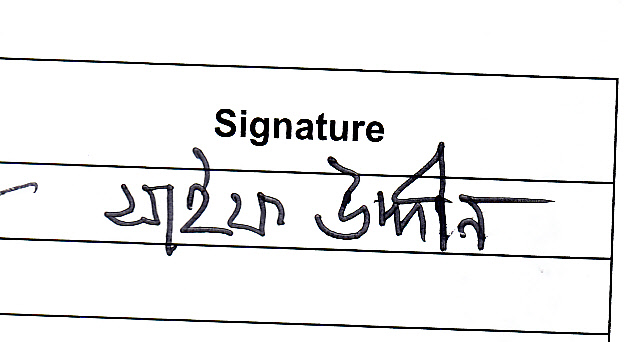 Signature
সাইফ উদ্দীন